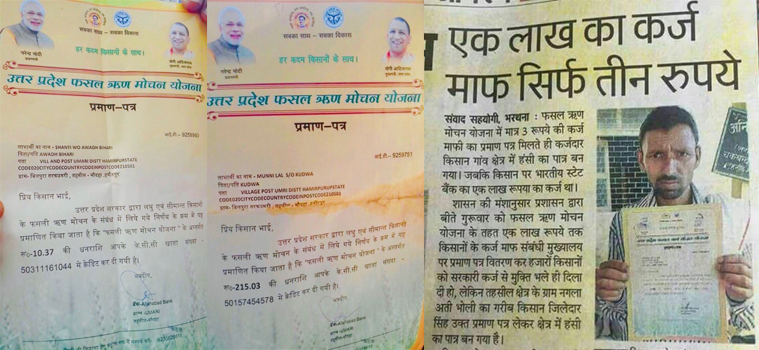 सबका साथ - सबका विकास
हर कदम किसानों के साथ।
नरेन्द्र मोदी
उत्तर प्रदेश फसल ऋण मोचन योजना
प्रमाण-पत्र
आई.डी. -9259761
लाभार्थी का नाम - SHANTI WO AWADH BIHARI
पिता/पति AWADH BIHARI
पता - VILL AND POST UMRI DISTT HAMIRPURSTATE
प्रिय किसान भाई,
उत्तर प्रदेश सरकार द्वारा लघु एवं सीमान्त किसानों
के फसली ऋण मोचन के संबंध में लिये गये निर्णय के क्रम में यह
प्रमाणित किया जाता है कि "फसली ऋण मोचन योजना" के अन्तर्गत
रू0-10.37 की धनराशि आपके के.सी.सी खाता संख्या -
50311161044 में क्रेडिट कर दी गयी है।
भवदीय,
बैंक-Allahabad Bank
सबका साथ - सबका विकास
हर कदम किसानों के साथ।
नरेन्द्र मोदी
उत्तर प्रदेश फसल ऋण मोचन योजना
प्रमाण-पत्र
आई.डी. -9259751
लाभार्थी का नाम - MUNNI LAL S/O KUDWA
पिता/पति KUDWA
पता - VILLAGE POST UMRI DISTT HAMIRPURSTATE
प्रिय किसान भाई,
उत्तर प्रदेश सरकार द्वारा लघु एवं सीमान्त किसानों
के फसली ऋण मोचन के संबंध में लिये गये निर्णय के क्रम में यह
प्रमाणित किया जाता है कि "फसली ऋण मोचन योजना" के अन्तर्गत
रू0-215.03 की धनराशि आपके के.सी.सी खाता संख्या -
50157454578 में क्रेडिट कर दी गयी है।
भवदीय,
बैंक-Allahabad Bank
एक लाख का कर्ज
माफ सिर्फ तीन रुपये
संवाद सहयोगी, भरथना : फसल ऋण
मोचन योजना में मात्र 3 रूपये की कर्ज
माफी का प्रमाण पत्र मिलते ही कर्जदार
किसान गांव क्षेत्र में हंसी का पात्र बन
गया। जबकि किसान पर भारतीय स्टेट
बैंक का एक लाख रूपया का कर्ज था।
शासन की मंशानुसार प्रशासन द्वारा
बीते गुरूवार को फसल ऋण मोचन
योजना के तहत एक लाख रूपये तक
किसानों के कर्ज माफ संबंधी मुख्यालय
पर प्रमाण पत्र वितरण कर हजारों किसानों
को सरकारी कर्ज से मुक्ति भले ही दिला
दी हो, लेकिन तहसील क्षेत्र के ग्राम नगला
अती भोली का गरीब किसान जिलेदार
सिंह उक्त प्रमाण पत्र लेकर क्षेत्र में हंसी
का पात्र बन गया है।